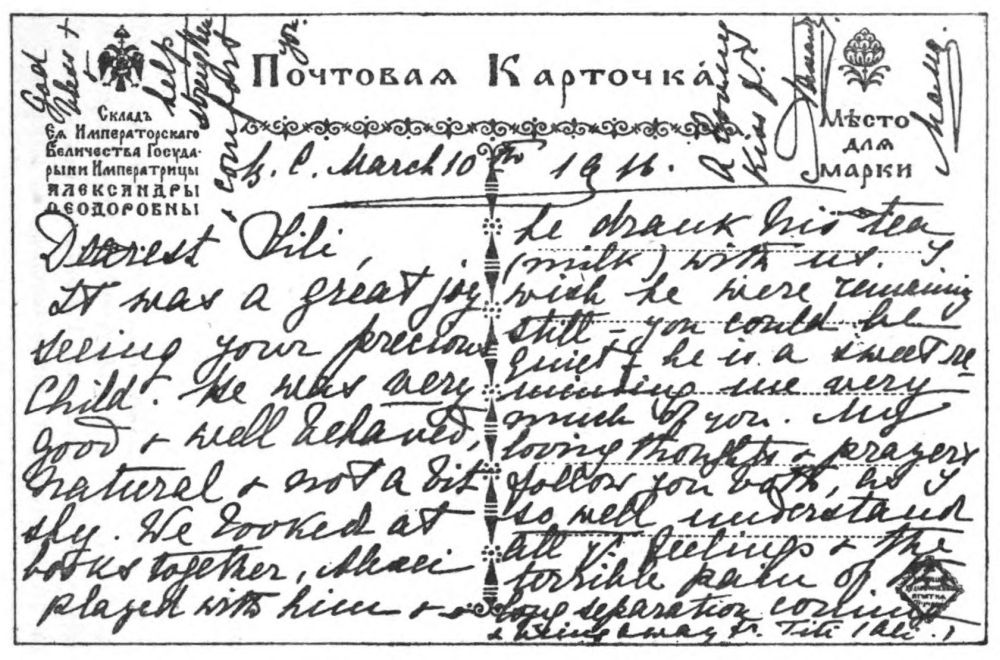 Почтовая Карточка
Складъ
Ея Императорскаго
Величества Госуда-
рыни Императрицы
Александры
Ѳеодоровны
Мѣсто
для
марки
March 10th 1916.
Dearest Lili,
It was a great joy
seeing your precious
Child. He was very
good & well behaved,
natural & not a bit
shy. We looked at
books together, Alexei
played with him &
he drank his tea
(milk) with us. I
wish he were remaining
still - you could be
quiet, he is a sweet re
minding me very
much of you. My
loving thoughts & prayers
follow you both, as I
so well understand
all yr. feelings & the
terrible pain of the
long separation coming
& being away fr. Titi
God
bless &
help
strengthen
& comfort
you.
A loving
kiss fr.